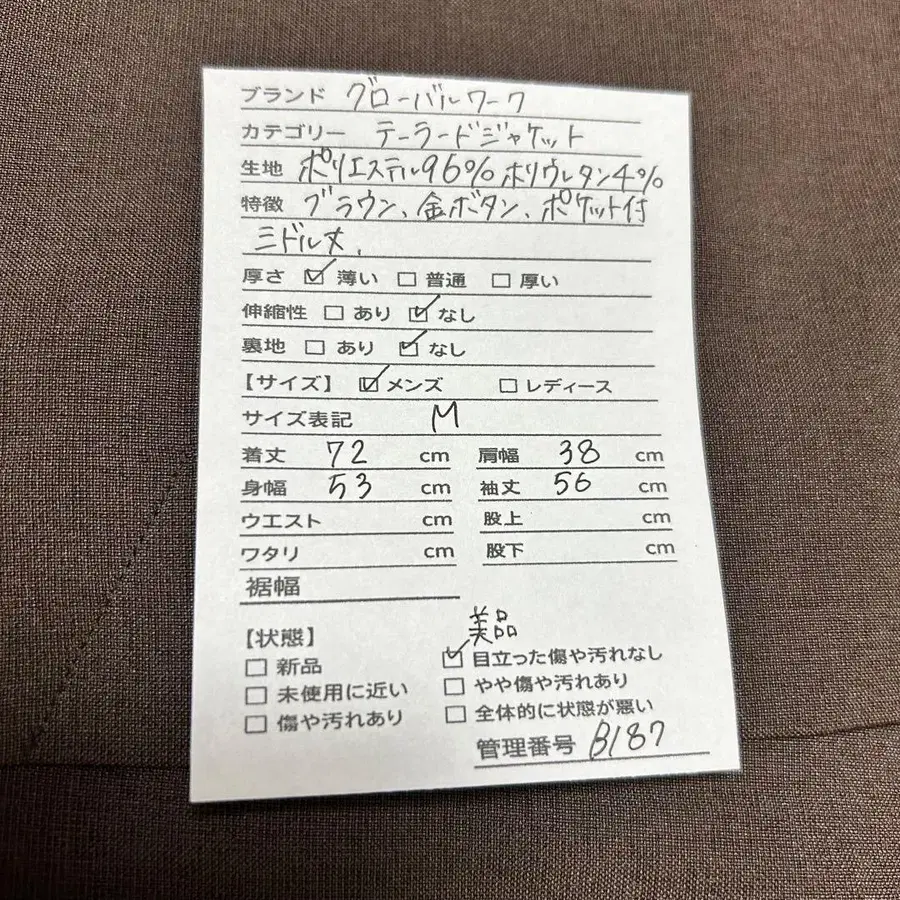 ブランド グローバルワーク
カテゴリー テーラードジャケット
生地 ポリエステル96% ポリウレタン4%
特徴 ブラウン、金ボタン、ポケット付
ミドル丈、
厚さ ☑ 薄い ☐ 普通 ☐ 厚い
伸縮性 ☐ あり ☑ なし
裏地 ☐ あり ☑ なし
【サイズ】 ☑ メンズ ☐ レディース
サイズ表記 M
着丈 72 cm 肩幅 38 cm
身幅 53 cm 袖丈 56 cm
ウエスト cm 股上 cm
ワタリ cm 股下 cm
裾幅
【状態】 美品
☐ 新品 ☑ 目立った傷や汚れなし
☐ 未使用に近い ☐ やや傷や汚れあり
☐ 傷や汚れあり ☐ 全体的に状態が悪い
管理番号 B187